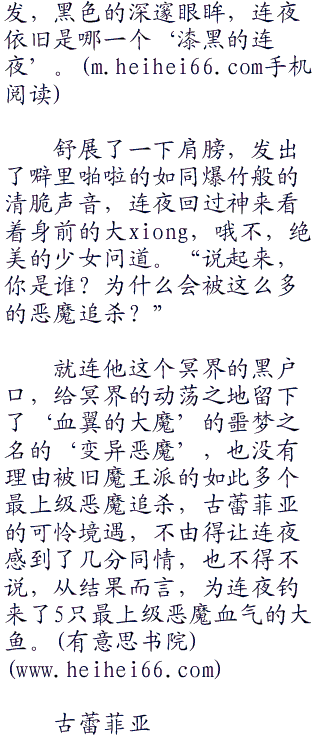 发，黑色的深邃眼眸，连夜
依旧是哪一个‘漆黑的连
夜’。(m.heihei66.com手机
阅读)
舒展了一下肩膀，发出
了噼里啪啦的如同爆竹般的
清脆声音，连夜回过神来看
着身前的大xiong，哦不，绝
美的少女问道。“说起来，
你是谁？为什么会被这么多
的恶魔追杀？”
就连他这个冥界的黑户
口，给冥界的动荡之地留下
了‘血翼的大魔’的噩梦之
名的‘变异恶魔’，也没有
理由被旧魔王派的如此多个
最上级恶魔追杀，古蕾菲亚
的可怜境遇，不由得让连夜
感到了几分同情，也不得不
说，从结果而言，为连夜钓
来了5只最上级恶魔血气的大
鱼。(有意思书院)
(www.heihei66.com)
古蕾菲亚